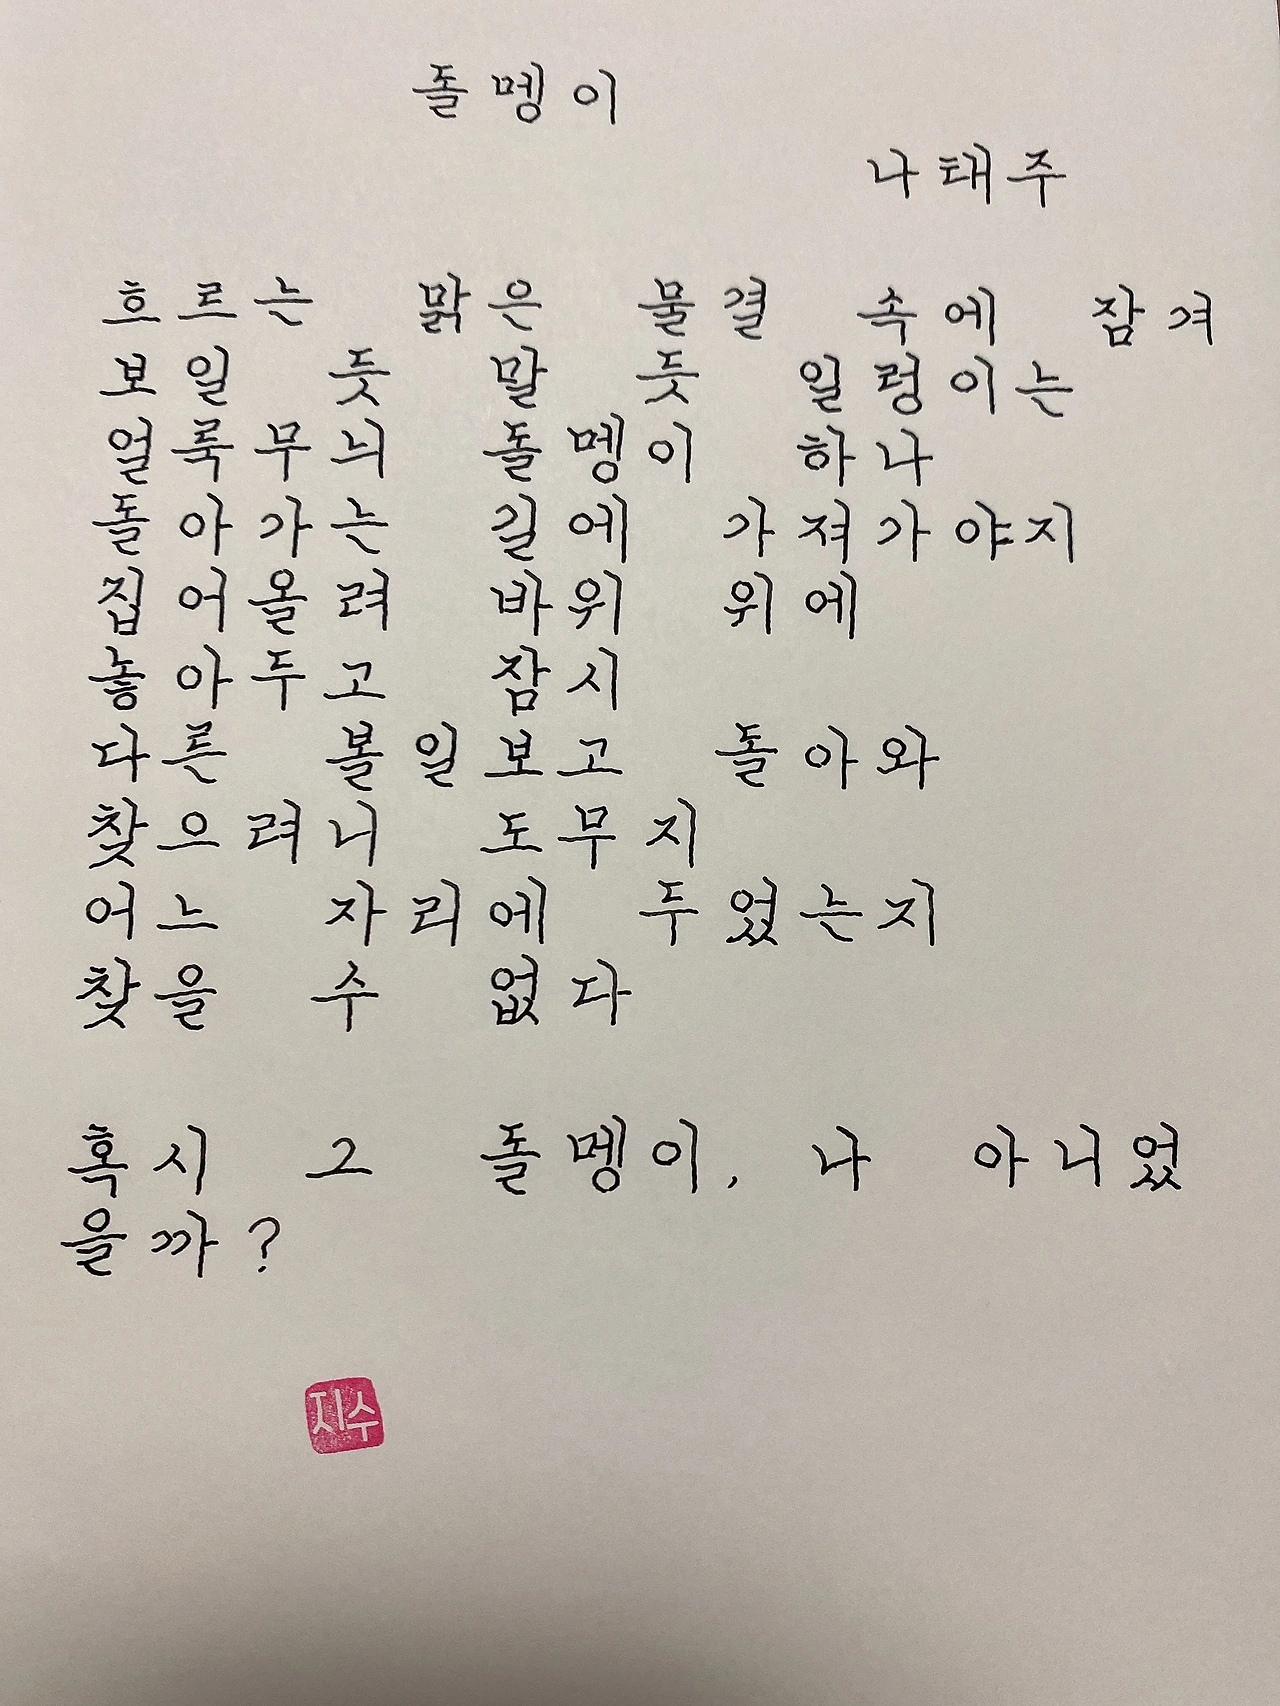 돌멩이
나태주
흐르는 맑은 물결 속에 잠겨
보일 듯 말 듯 일렁이는
얼룩무늬 돌멩이 하나
돌아가는 길에 가져가야지
집어올려 바위 위에
놓아두고 잠시
다른 볼일보고 돌아와
찾으려니 도무지
어느 자리에 두었는지
찾을 수 없다
혹시 그 돌멩이, 나 아니었
을까?
지수